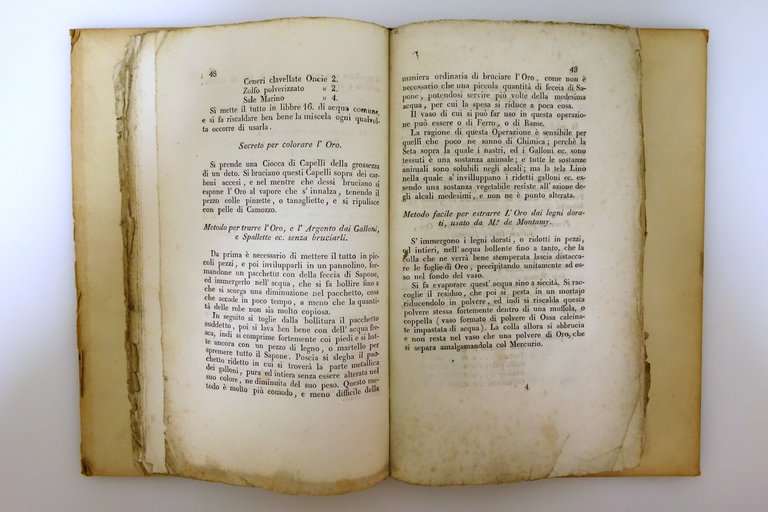 48
Ceneri clavellate Oncie 2.
Zolfo polverizzato » 2.
Sale Marino » 4.
Si mette il tutto in libbre 16. di acqua comune,
e si fa riscaldare ben bene la miscela ogni qualvol-
ta occorre di usarla.
Secreto per colorare l' Oro.
Si prende una Ciocca di Capelli della grossezza
di un deto. Si bruciano questi Capelli sopra dei car-
boni accesi, e nel mentre che dessi bruciano si
espone l' Oro al vapore che s' innalza, tenendo il
pezzo colle pinzette, o tanagliette, e si ripulisce
con pelle di Camozzo.
Metodo per trarre l' Oro, e l' Argento dai Galloni,
e Spallette ec. senza bruciarli.
Da prima è necessario di mettere il tutto in pic-
coli pezzi, e poi invilupparli in un pannolino, for-
mandone un pacchetto con della feccia di Sapone,
ed immergerlo nell' acqua, che si fa bollire fino a
che si scorga una diminuzione nel pacchetto, cosa
che accade in poco tempo, a meno che la quanti-
tà delle robe non sia molto copiosa.
In seguito si toglie dalla bollitura il pacchetto
suddetto, poi si lava ben bene con dell' acqua fre-
sca, indi si comprime fortemente coi piedi e si bat-
te ancora con un pezzo di legno, o martello per
spremere tutto il Sapone. Poscia si slegha il pac-
chetto ridetto in cui si troverà la parte metallica
dei galloni, pura ed intiera senza essere alterata nel
suo colore, ne diminuita del suo peso. Questo me-
todo è molto più comodo, e meno difficile della
49
maniera ordinaria di bruciare l' Oro, come non è
necessario che una piccola quantità di feccia di Sa-
pone, potendosi servire più volte della medesima
acqua, per cui la spesa si riduce a poca cosa.
Il vaso di cui si può far uso in questa operazio-
ne può essere o di Ferro, o di Rame.
La ragione di questa Operazione è sensibile per
quelli che poco ne sanno di Chimica; perchè la
Seta sopra la quale i nastri, ed i Galloni ec. sono
tessuti è una sostanza animale; e tutte le sostanze
animali sono solubili negli alcali; ma la tela Lino
nella quale s' invilluppano i ridetti galloni ec. es-
sendo una sostanza vegetabile resiste all' azione de-
gli alcali medesimi, e non ne è punto alterata.
Metodo facile per estrarre L' Oro dai legni dora-
ti, usato da M.r de Montamy.
S' immergono i legni dorati, o ridotti in pezzi,
od intieri, nell' acqua bollente fino a tanto, che la
colla che ne verrà bene stemperata lascia distacca-
re le foglie di Oro, precipitando unitamente ad es-
so nel fondo del vaso.
Si fa evaporare quest' acqua sino a siccità. Si rac-
coglie il residuo, che poi si pesta in un mortajo
riducendolo in polvere, ed indi si riscalda questa
polvere stessa fortemente dentro di una muffola, o
coppella (vaso formato di polvere di Ossa calcina-
te impastata di acqua). La colla allora si abbrucia
e non resta nel vaso che una polvere di Oro, che
si separa amalgamandola col Mercurio.
4